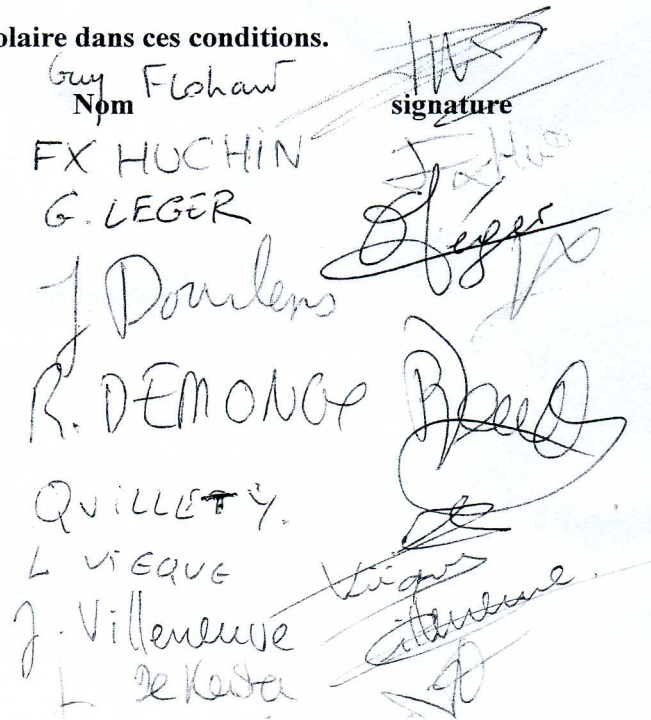 olaire dans ces conditions.
Guy Flohart
Nom signature
FX HUCHIN
G. LEGER Léger
J Dourlens
R. DEMONCY
QUILLET Y.
L VIEQUE Vièque
J. Villeneuve Villeneuve
L